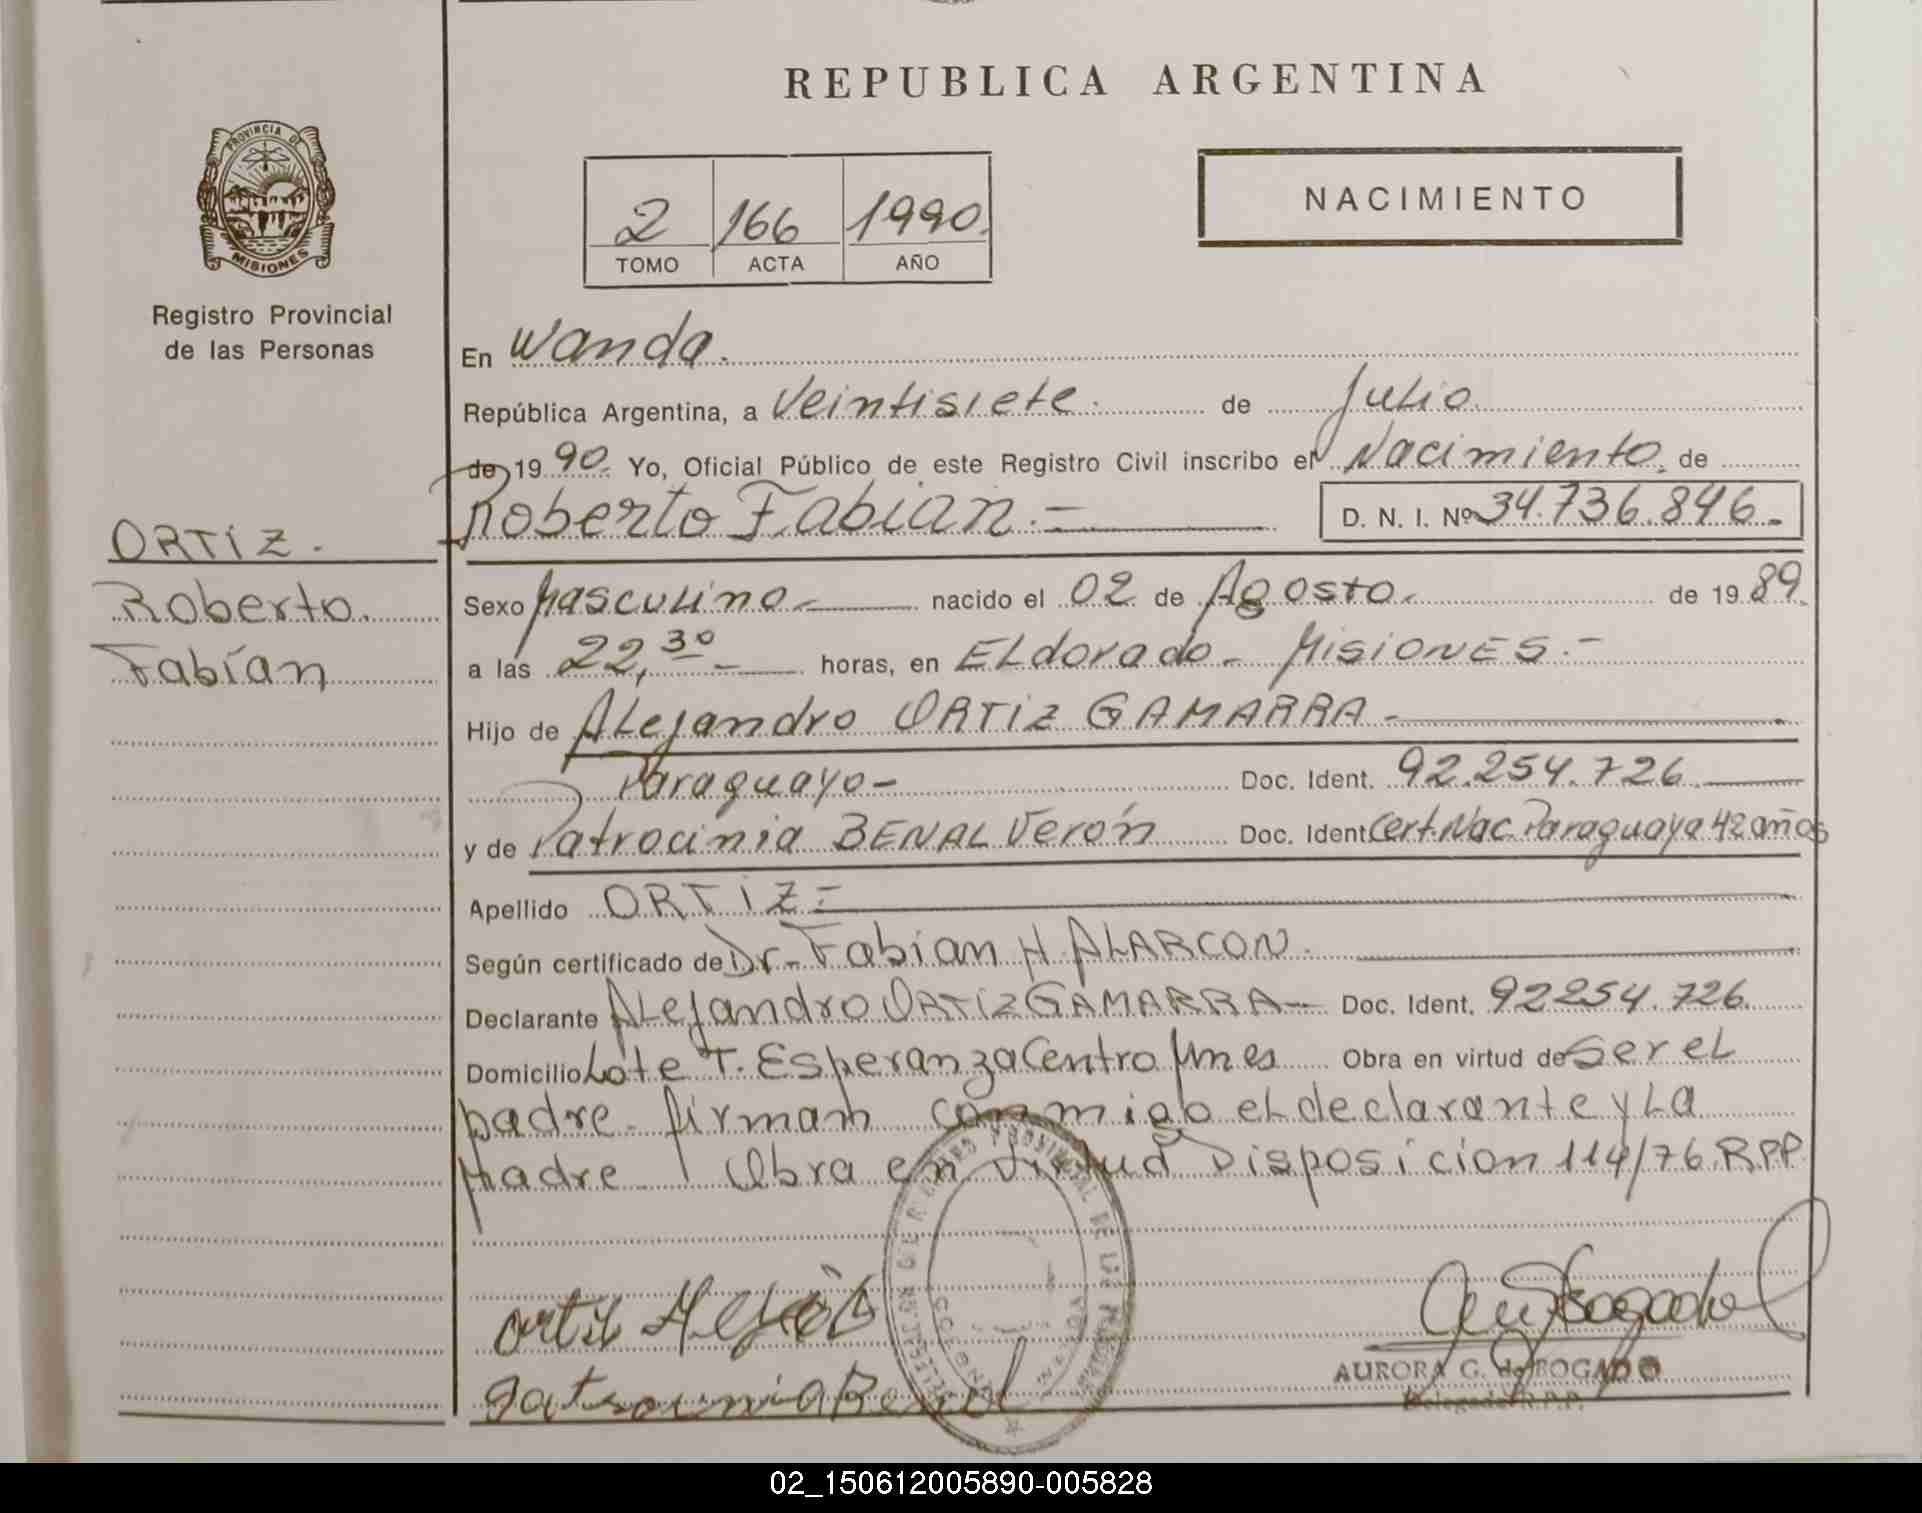 REPUBLICA ARGENTINA
PROVINCIA DE
MISIONES
Registro Provincial
de las Personas
2 166 1990
TOMO ACTA AÑO
NACIMIENTO
En Wanda.
República Argentina, a Veintisiete. de Julio
de 19 90. Yo, Oficial Público de este Registro Civil inscribo el Nacimiento. de
Roberto Fabian.- D. N. I. Nº 34.736.846.-
ORTIZ.
Roberto.
Fabían
Sexo Masculino.- nacido el 02 de Agosto. de 19 89.
a las 22,30 - horas, en ELdorado - MISIONES.-
Hijo de ALejandro ORTIZ GAMARRA -
Paraguayo- Doc. Ident. 92.254.726
y de Patrocinia BENAL Verón Doc. Ident Cert. Nac. Paraguaya 42 años
Apellido ORTIZ=
Según certificado de Dr- Fabian H. ALARCON.
Declarante ALejandro ORTIZ GAMARRA - Doc. Ident. 92254.726.
Domicilio Lote T. Esperanza Centro Mnes Obra en virtud de Ser eL
padre. firman conmigo eL declarante y La
Madre Obra en virtud Disposicion 114/76.RPP
AURORA G. de BOGADO
Delegada R.P.P.
02_150612005890-005828